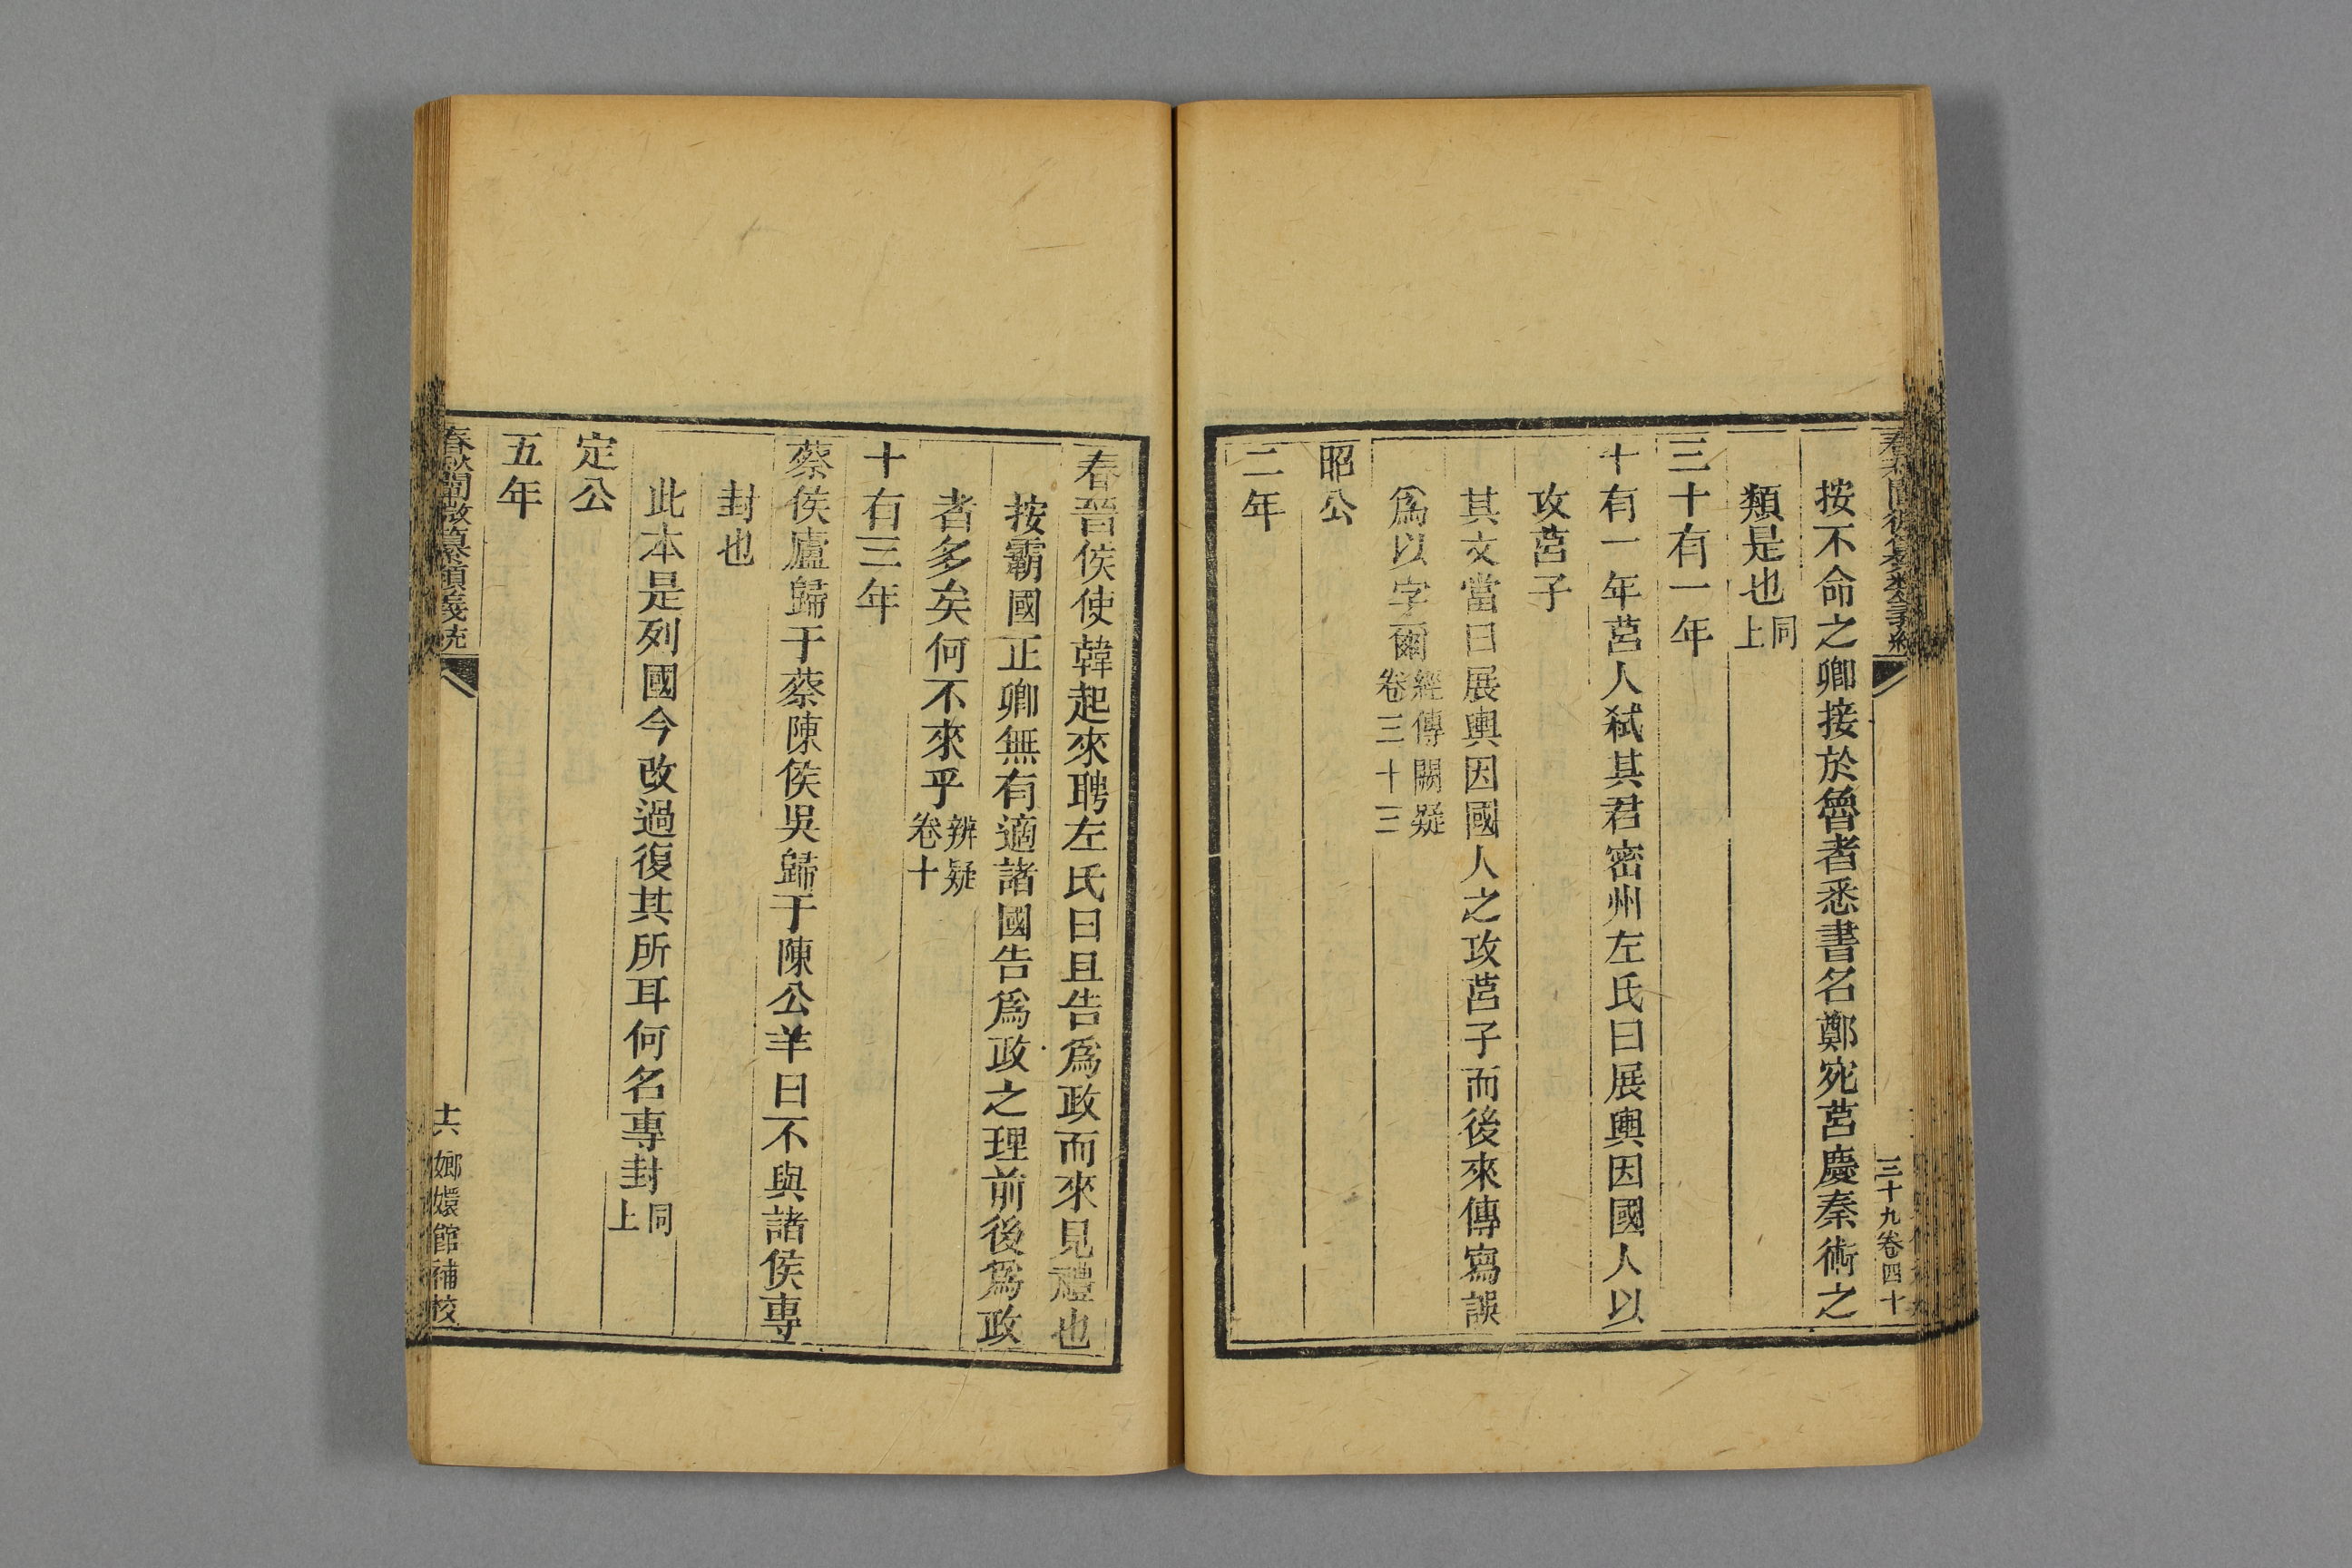 按不命之卿接於魯者悉書名鄭宛莒慶秦術之
類是也同上
三十有一年
十有一年莒人弒其君密州左氏曰展輿因國人以
攻莒子
其文當曰展輿因國人之攻莒子而後來傳寫誤
爲以字爾經傳闕疑卷三十三
昭公
二年
三十九卷四十
春晉侯使韓起來聘左氏曰且告爲政而來見禮也
按霸國正卿無有適諸國告爲政之理前後爲政
者多矣何不來乎辨疑卷十
十有三年
蔡侯廬歸于蔡陳侯吳歸于陳公羊曰不與諸侯專
封也
此本是列國今改過復其所耳何名專封同上
定公
五年
春秋閒微纂類義統
十六 嫏嬛館補校